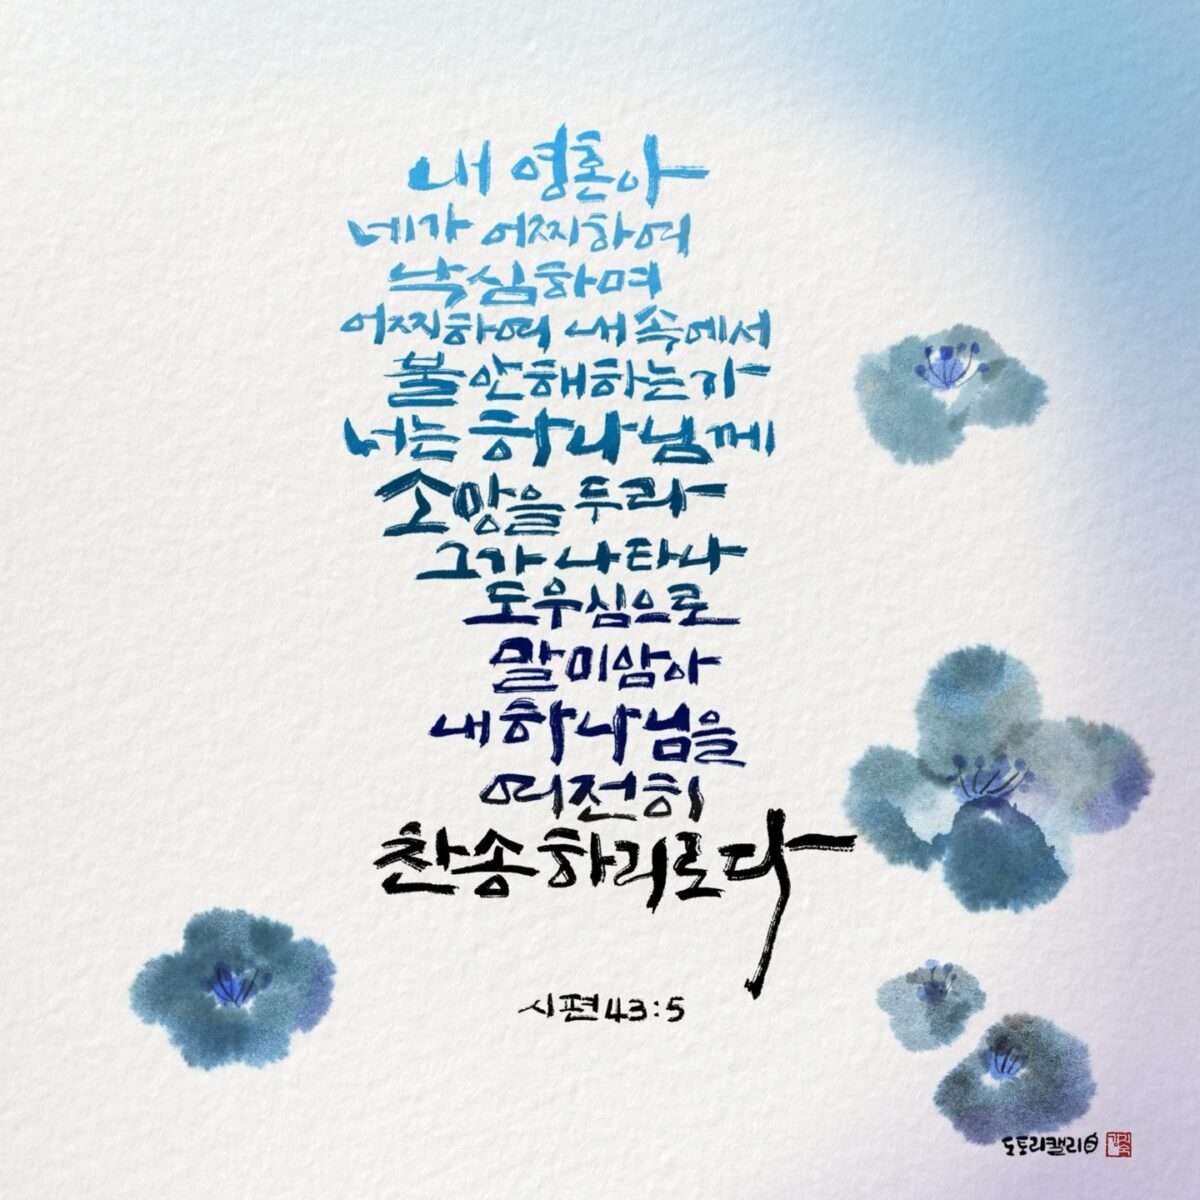 내 영혼아
네가 어찌하여
낙심하며
어찌하여 내 속에서
불안해하는가
너는 하나님께
소망을 두라
그가 나타나
도우심으로
말미암아
내 하나님을
여전히
찬송하리로다
시편 43:5
도토리캘리